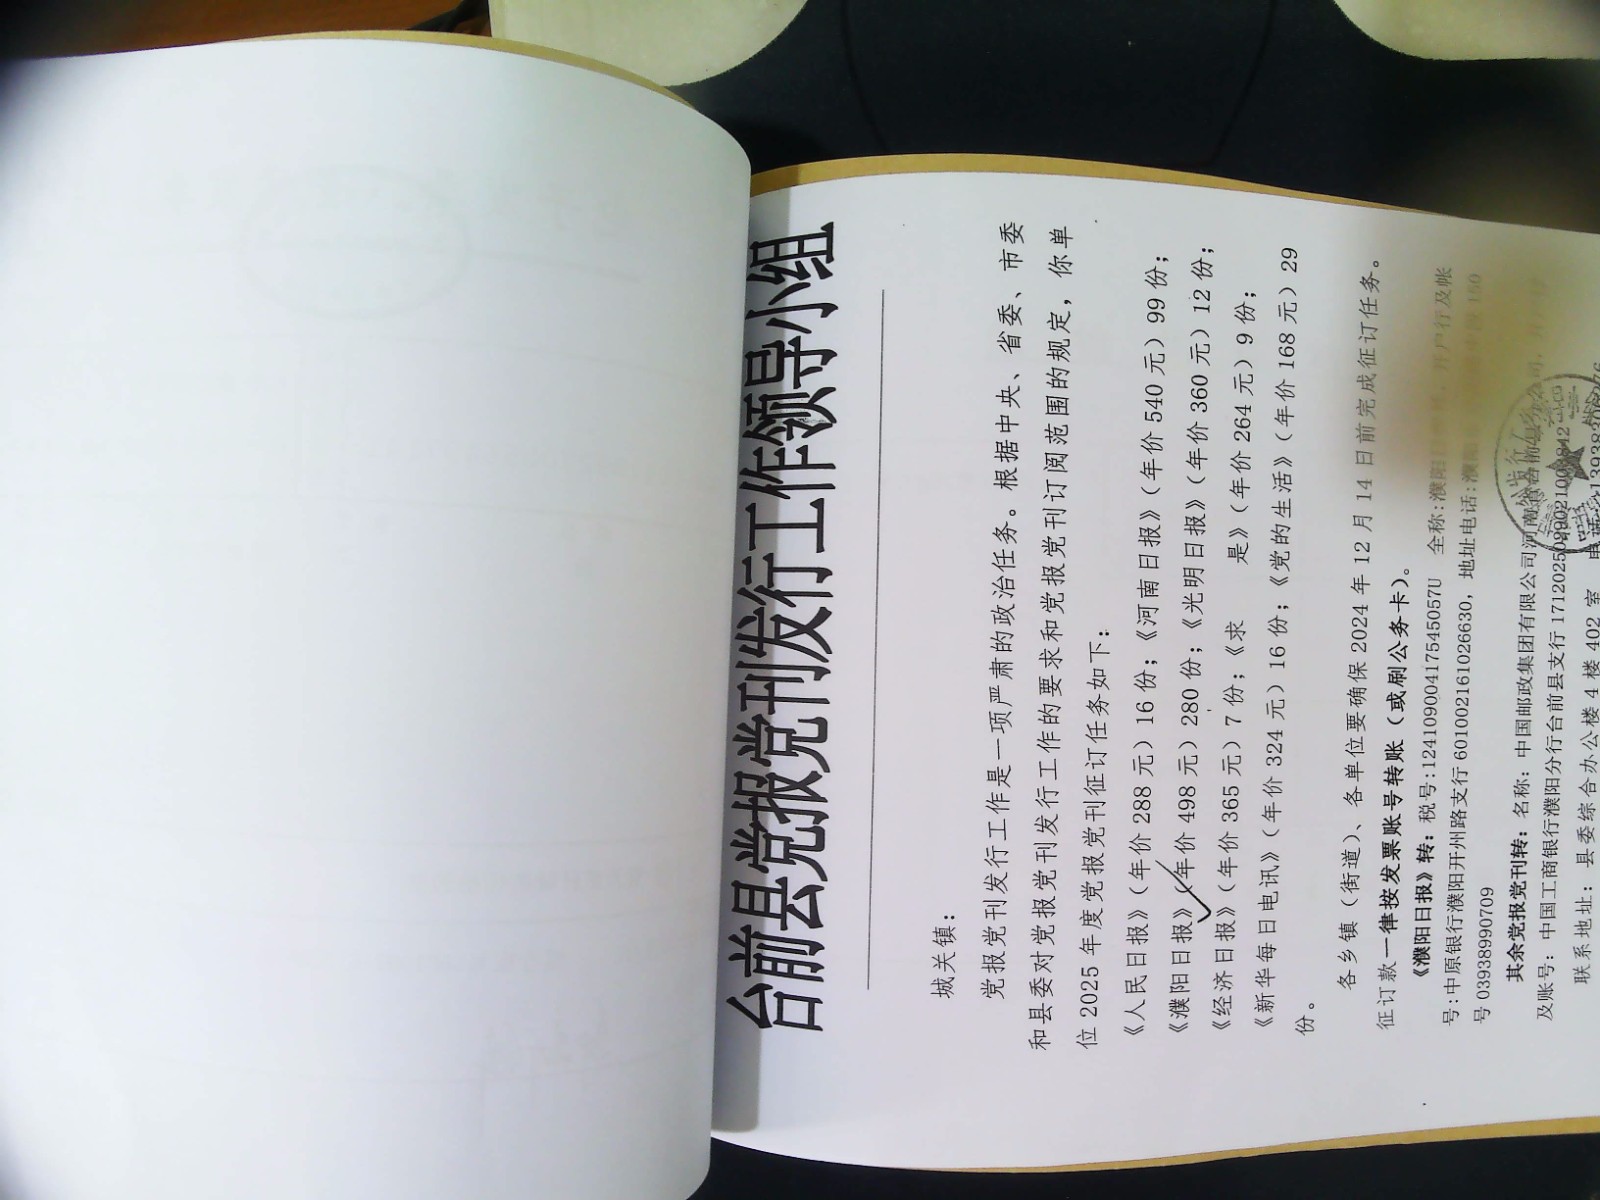 台前县党报党刊发行工作领导小组
城关镇：
党报党刊发行工作是一项严肃的政治任务。根据中央、省委、市委
和县委对党报党刊发行工作的要求和党报党刊订阅范围的规定，你单
位 2025 年度党报党刊征订任务如下：
《人民日报》（年价 288 元）16 份；《河南日报》（年价 540 元）99 份；
《濮阳日报》（年价 498 元）280 份；《光明日报》（年价 360 元）12 份；
《经济日报》（年价 365 元）7 份；《求 是》（年价 264 元）9 份；
《新华每日电讯》（年价 324 元）16 份；《党的生活》（年价 168 元）29
份。
各乡镇（街道）、各单位要确保 2024 年 12 月 14 日前完成征订任务。
征订款一律按发票账号转账（或刷公务卡）。
《濮阳日报》转：税号:12410900417545057U 全称:濮阳 开户行及帐
号:中原银行濮阳开州路支行 601002161026630，地址电话:濮阳
号 03938990709
其余党报党刊转：名称：中国邮政集团有限公司河南省台前县分公司，
及账号：中国工商银行濮阳分行台前县支行
联系地址：县委综合办公楼 4 楼 402 室